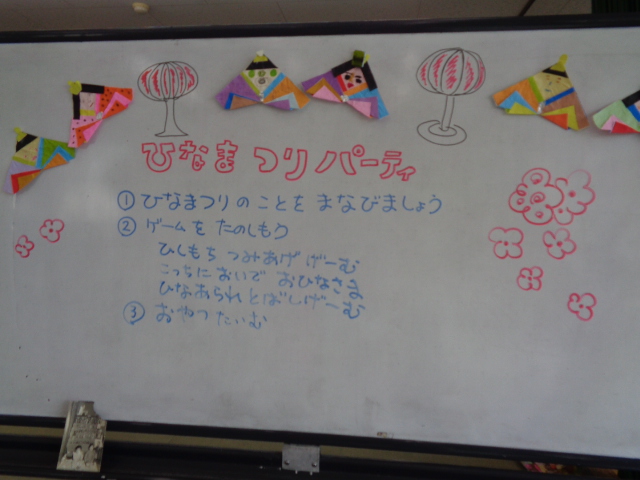 ひなまつりパーティ
① ひなまつりのことを まなびましょう
② ゲームを たのしもう
ひしもち つみあげ げーむ
こっちに おいで おひなさま
ひなあられ とばしげーむ
③ おやつ たいむ